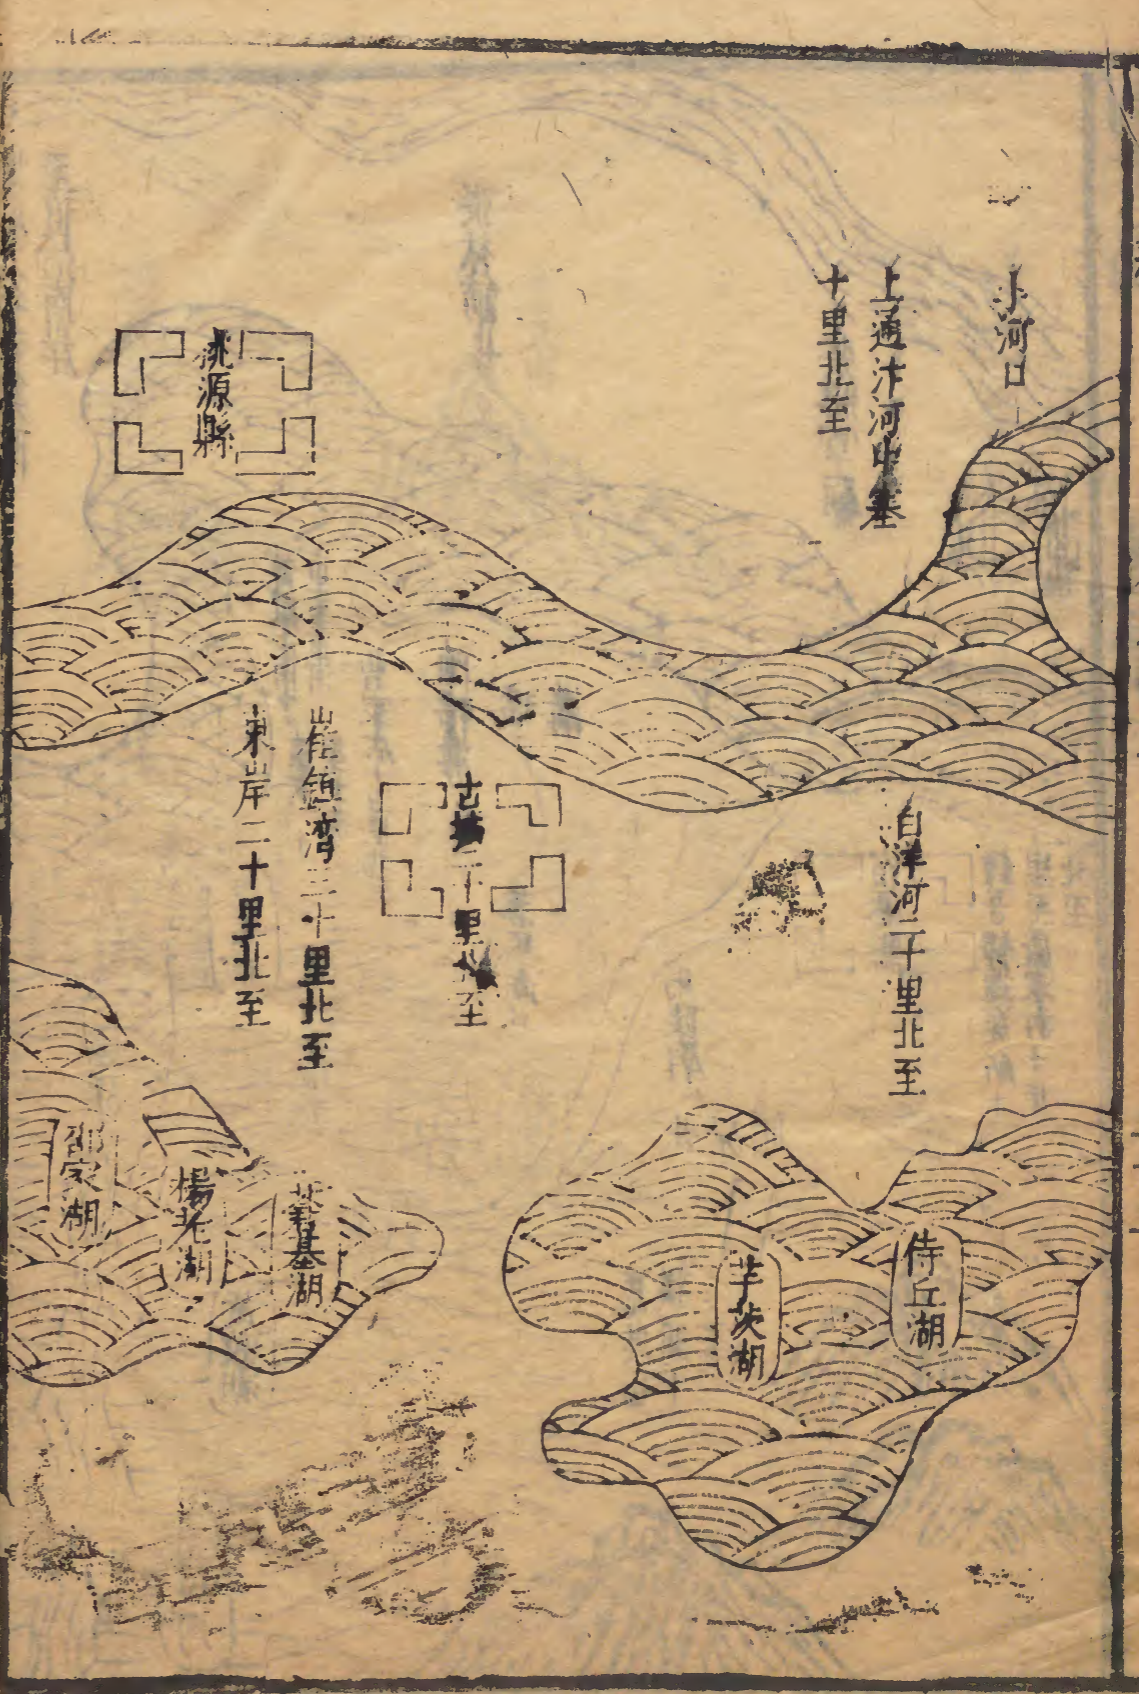 小河口
上通汴河
十里北至
桃源縣
白洋河二十里北至
古城二十里北至
崔鎮湾三十里北至
東岸二十里北至
侍丘湖
芊茨湖
基湖
湖
邵家湖